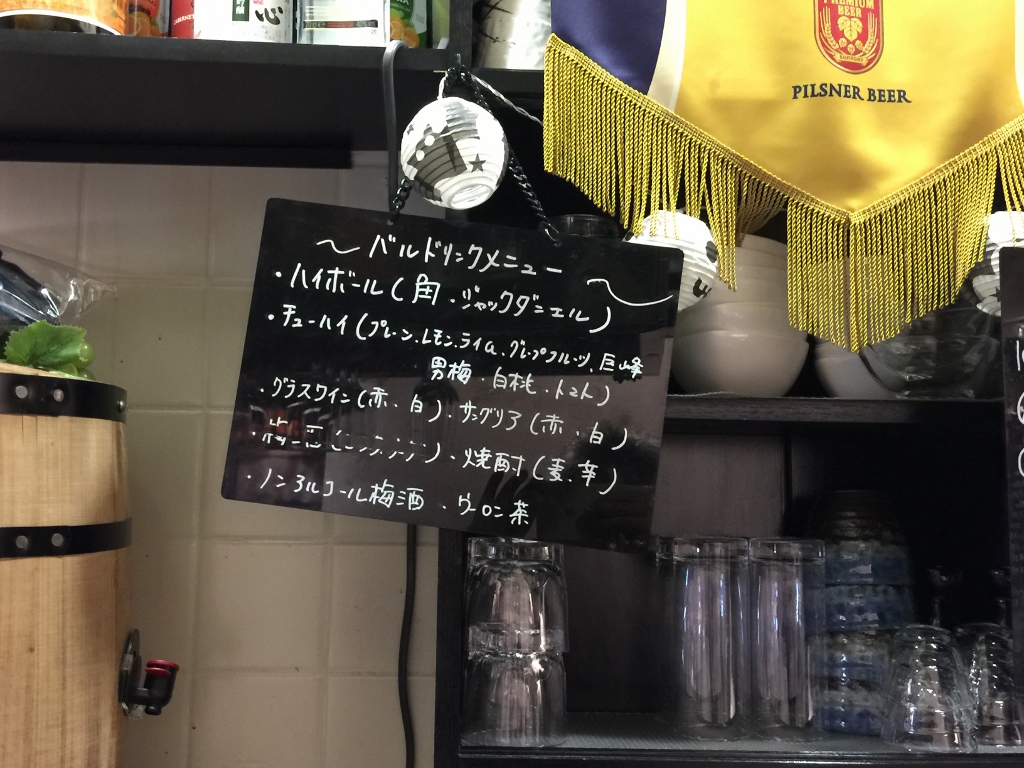 心
PREMIUM
BEER
SUNTORY
PILSNER BEER
〜バルドリンクメニュー〜
・ハイボール(角・ジャックダニエル)
・チューハイ(プレーン、レモン、ライム、グレープフルーツ、巨峰
男梅・白桃・トマト)
・グラスワイン(赤、白)・サングリア(赤、白)
・焼酎(麦、芋)
・ノンアルコール梅酒 、ウーロン茶